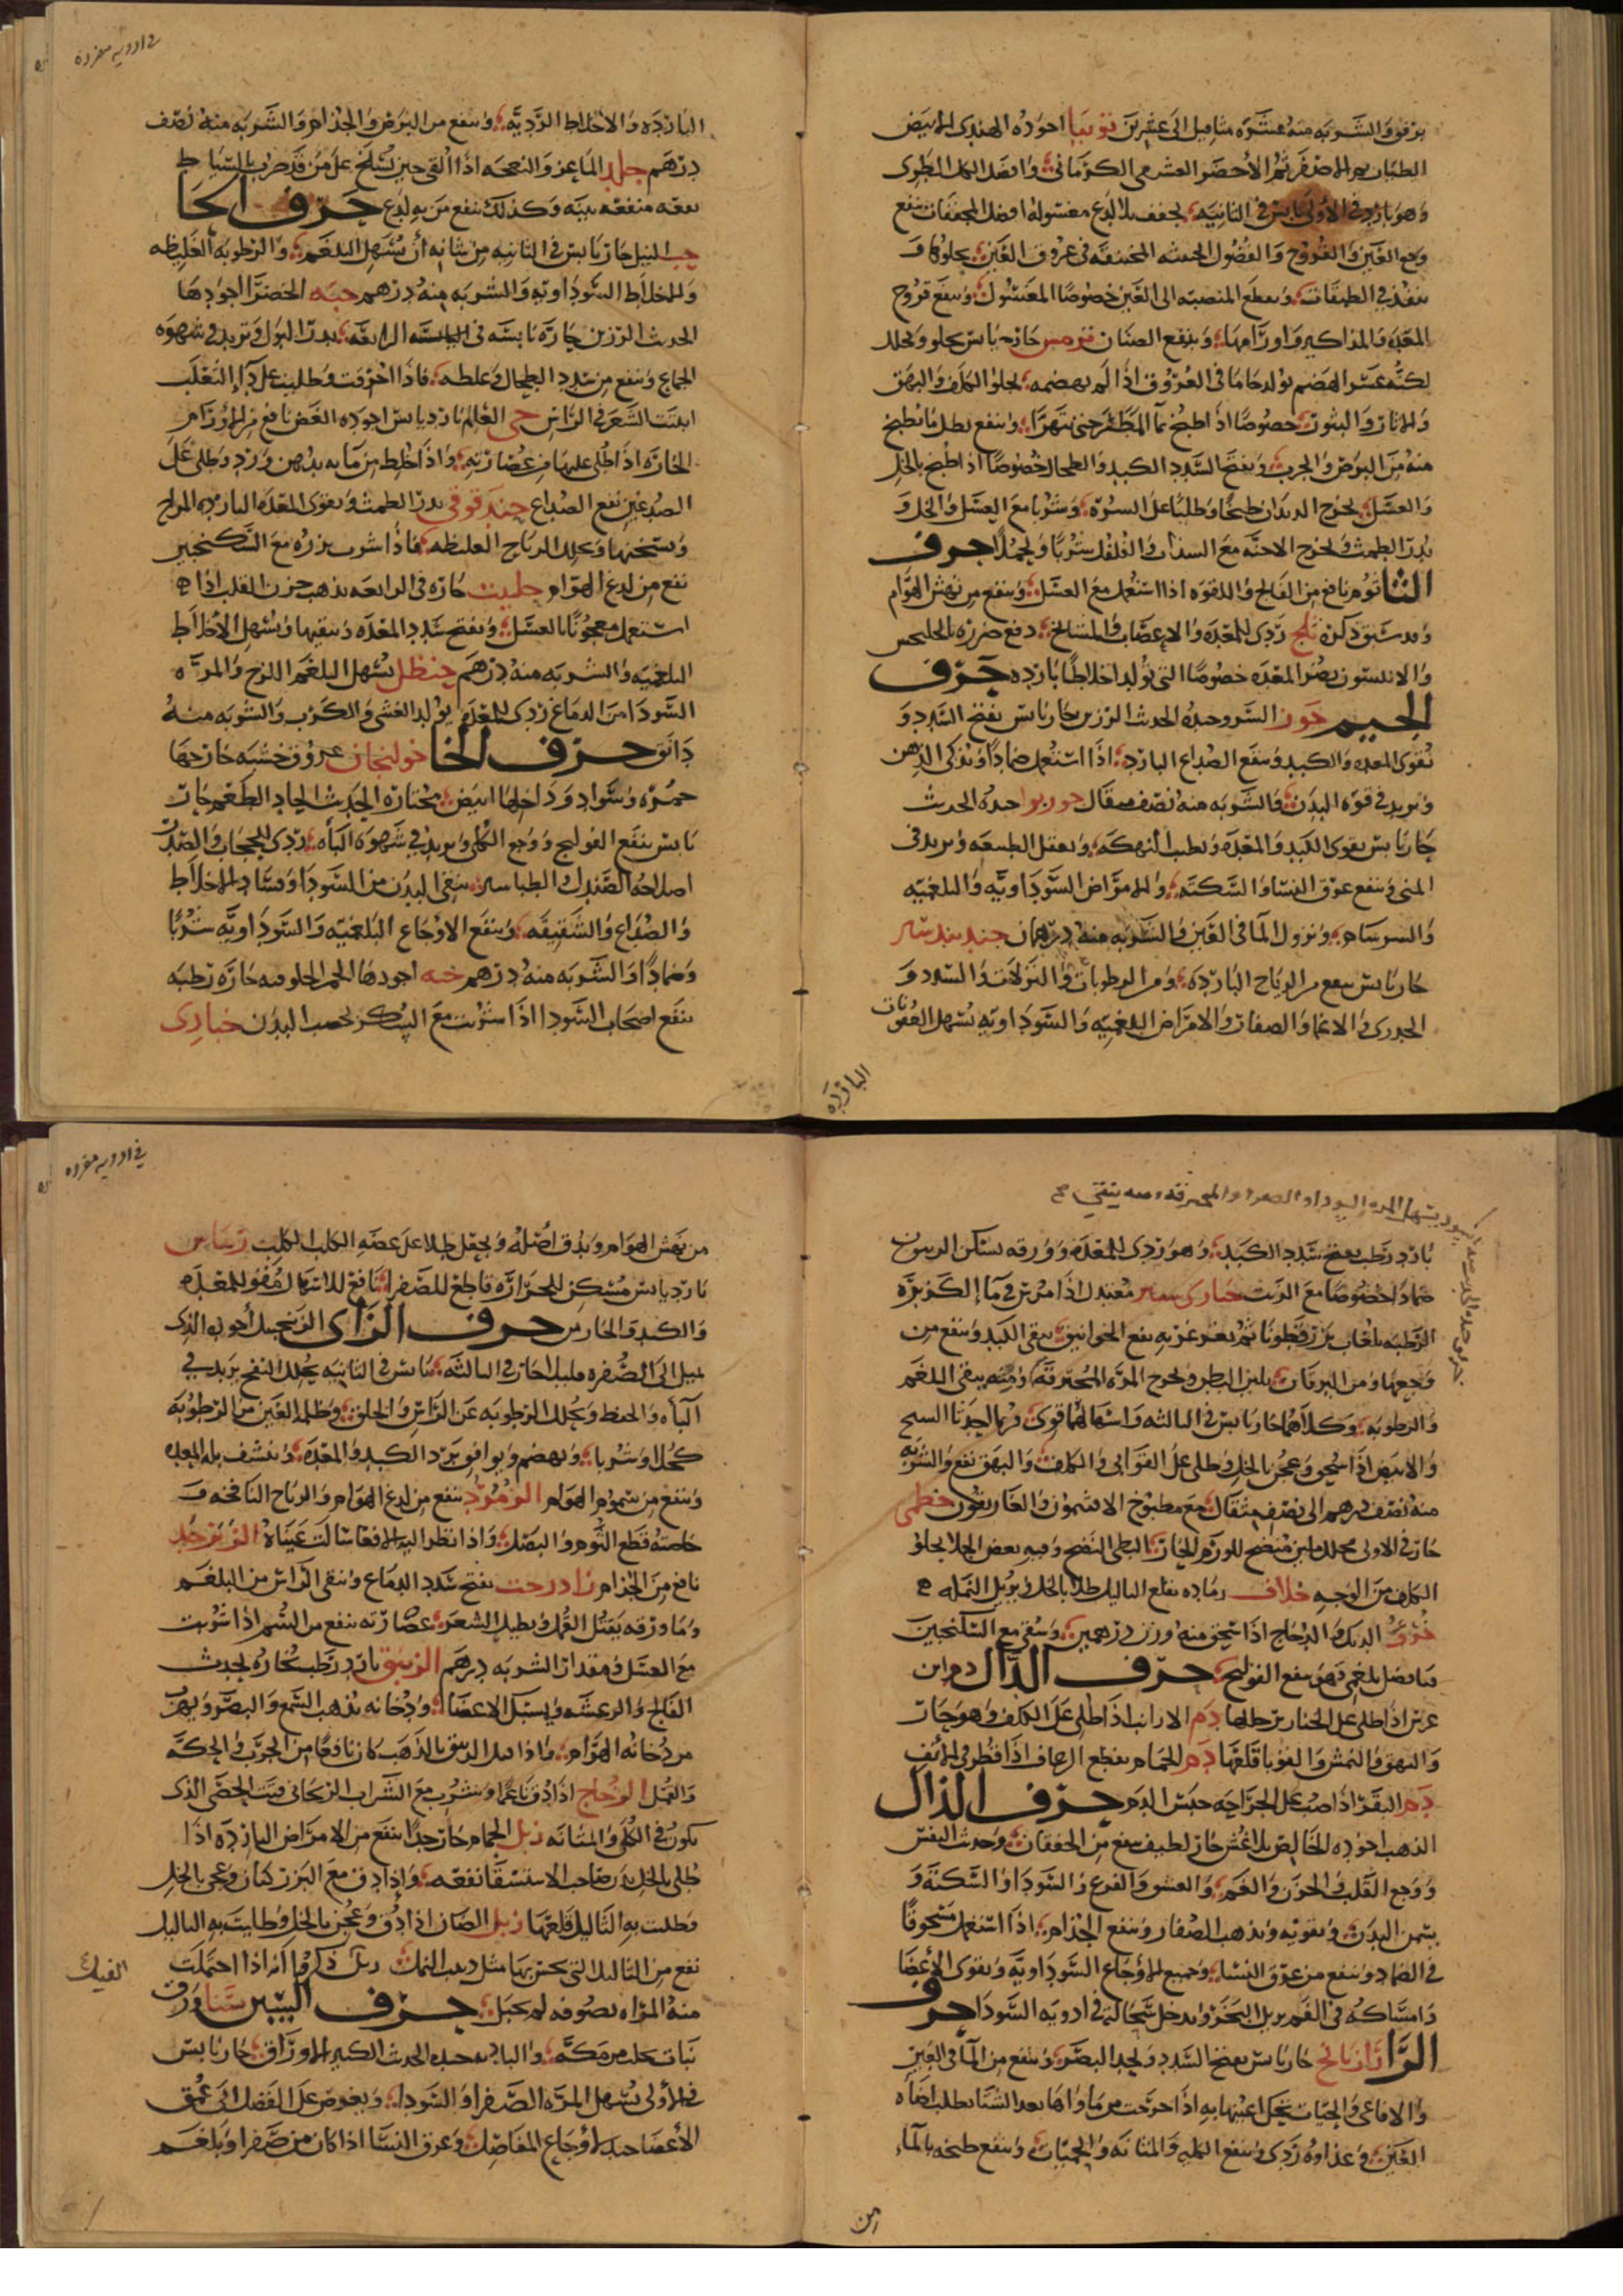 برفق والشربه منه عشرة مثاقيل الى عشرين توتيا اجوده الهندى الابيض
الطيار ثم الاصفر ثم الاخضر الكرمانى وافضل الكل الطرى
وهو بارد فى الاولى يابس فى الثانيه يجفف بلا لدع مغسوله افضل المجففات ينفع
وجع العين والقروح والفضول الخبيثه المحتقنه فى عروق العين
ينفذ فى الطبقات ويقطع المنصبه الى العين خصوصا المغسول وينفع قروح
المقعده والمذاكير واورامها وينفع الصنان ترمس حار يابس يجلو ويحلل
لكنه عسر الهضم يولد خاما فى العروق اذا لم يهضمه يجلوا الكلف والبهق
والاثار والبثور خصوصا اذا طبخ بماء المطر حتى يتهرا وينفع
من البرص والجرب ويفتح السدد الكبد والطحال خصوصا اذا طبخ بالخل
والعسل يخرج الديدان طبخا وطليا على السره وشربا مع العسل والخل و
يدر الطمث ويخرج الاجنه مع السذاب والفلفل شربا وحملا حرف
الثا ثوم نافع من الفالج واللقوه اذا استعمل مع العسل وينفع من نهش الهوام
وقد سبق ذكره ثلج ردى للمعده والاعصاب والمشايخ دفع ضرره
والانيسون يضر المعده خصوصا التى تولد اخلاطا بارده حرف
الجيم جوز السرو جيده الحديث الرزين حار يابس يفتح السدد و
يقوى المعده والكبد وينفع الصداع البارد اذا استعمل ضمادا ويذكى الذهن
ويزيد فى قوه البدن والشربه منه نصف مثقال جوزبوا جيده الحديث
حار يابس يقوى الكبد والمعده ويطيب النهكه ويعقل الطبيعه ويزيد فى
المنى وينفع عرق النسا والسكته والامراض السوداويه والبلغميه
والسرسام ونزول الما فى العين والشربه منه درهمان جندبيدستر
حار يابس ينفع من الرياح البارده ومن الرطوبات والنزلات والسدد و
الجدرى والاغما والامراض البلغميه والسوداويه يسهل العفونات
البارده
فى ادويه مفرده
البارده والاخلاط الرديه وينفع من البرص والجذام والشربه منه نصف
درهم جلد الماعز والنعجه اذا القى حين يسلخ على من قد ضرب بالسياط
نفعه منفعه بينه وكذلك ينفع من به لدغ حرف الحا
حب النيل حار يابس فى الثانيه من شانه ان يسهل البلغم والرطوبه الغليظه
والاخلاط السوداويه والشربه منه درهم حبه الخضرا اجودها
الحديث الرزين حاره يابسه فى الرابعه يدر البول ويزيد فى شهوه
الجماع وينفع من سدد الطحال وغلظه فاذا احرقت وطليت على دآ الثعلب
انبتت الشعر فى الراس حى العالم بارد يابس اجوده الغض نافع من الاورام
الحاره اذا طلى عليها من عصارته واذا خلط من مآيه بدهن ورد وطلى على
الصدغين نفع الصداع حندقوقى يدر الطمث ويقوى المعده البارده المزاج
ويسخنها ويحلل الرياح الغليظه فاذا شرب بزره مع السكنجبين
نفع من لدغ الهوام حلتيت حاره فى الرابعه يذهب حزن القلب اذا
استعمل معجونا بالعسل ويفتح سدد المعده وينقيها ويسهل الاخلاط
البلغميه والشربه منه درهم حنظل يسهل البلغم اللزج والمره
السودا من الدماغ ردى للمعده يولد الغشى والكرب والشربه منه
دانق حرف الخا خولنجان عروق خشبه خارجها
حمره وسواد وداخلها ابيض مختاره الحديث الحاد الطعم حار
يابس ينفع القولنج ووجع الكلى ويزيد فى شهوه الباه ردى للحجاب والصدر
اصلاحه الصندل والطباشير ينقى البدن من السودا وفساد الاخلاط
والصداع والشقيقه وينفع الاوجاع البلغميه والسوداويه شربا
وضمادا والشربه منه درهم اجودها حاره رطبه
ينفع اصحاب السودا اذا شربت مع السكر يخصب البدن خبازى
فى ادويه مفرده
بارد رطب يفتح سدد الكبد وهو ردى للمعده وورقه يسكن
ضمادا خصوصا مع الزيت خيارشنبر معتدل اذا مرس فى مآ الكزبره
الرطبه بلعاب بزرقطونا ثم تغرغر به نفع الخوانيق ينقى الكبد وينفع من
وجعها ومن اليرقان يلين البطن ويخرج المره المحترقه ومنه ينقى البلغم
والرطوبه وكلاهما حار يابس فى الثالثه واسهالهما قوى وربما احدثا السحج
والابيض اذا سحق وعجن بالخل وطلى على القوابى والكلف والبهق نفع والشربه
منه نصف درهم الى نصف مثقال مع مطبوخ الافتيمون والغاريقون خطمى
حار فى الاولى محلل ملين منضج للورم الحار البطى النضج وفيه بعض الجلا يجلو
الكلف من الوجه خلاف رماده يقلع الثاليل طلا بالخل ويزيل النمله
خرو الديك والدجاج اذا سحق منه وزن درهمين وسقى مع السكنجبين
قيا فضل بلغمى فهو ينفع القولنج حرف الدال دم ابن
عرس اذا طلى على الخنازير حللها دم الارانب اذا طلى على الكلف وهو حار
والبهق والنمش والقوبا قلعها دم الحمام يقطع الرعاف اذا قطر فى الانف
دم البقر اذا صب على الجراحه حبس الدم حرف الذال
الذهب اجوده الخالص بلا غش حار لطيف ينفع من الخفقان وحديث النفس
ووجع القلب والحزن والغم والعشق والفزع والسودا والسكته و
يسمن البدن ويقويه ويذهب الصفار وينفع الجذام اذا استعمل مسحوقا
فى الضماد وينفع من عرق النسا وجميع الاوجاع السوداويه ويقوى الاعضا
وامساكه فى الفم يزيل البخر ويدخل سحالته فى ادويه السودا حرف
الرا رازيانج حار يابس يفتح السدد ويحد البصر وينفع من المآ فى العين
والافاعى والحيات تحك اعينها به اذا خرجت من ماواها بعد الشتا
العين وغذاوه ردى وينفع الكليه والمثانه والحميات وينفع طبخه بالمآ
من
فى ادويه مفرده
من نهش الهوام ويدق اصله ويجعل طلا على عضه الكلب الكلب ريباس
بارد يابس مسكن للحراره قاطع للصفرا نافع للاسهال مقو للمعده
والكبد الحارين حرف الزاى الزنجبيل اجوده الذى
يميل الى الصفره حار فى الثالثه يابس فى الثانيه يحلل النفخ يزيد فى
الباه والحفظ ويحلل الرطوبه عن الراس والحلق وظلمه العين من الرطوبه
كحلا وشربا ويهضم ويوافق برد الكبد والمعده وينشف بله المعده
وينفع من سموم الهوام الزمرد ينفع من لدغ الهوام والرياح النافخه و
خاصته قطع الثوم والبصل واذا نظر اليه الافعا سالت عيناه الزبرجد
نافع من الجذام زادرخت يفتح سدد الدماغ وينقى الراس من البلغم
وما ورقه يقتل القمل ويطيل الشعر عصارته ينفع من السم اذا شربت
مع العسل ومقدار الشربه درهم الزيبق بارد رطب بخاره يحدث
الفالج والرعشه ويسبل الاعضا ودخانه يذهب السمع والبصر ويهرب
من دخانه الهوام واذا قتل الزيبق بالذهب كان نافعا من الجرب والحكه
والقمل الزجاج اذا دق ناعما وشرب مع الشراب الريحانى فتت الحصى الذى
يكون فى الكلى والمثانه زبل الحمام حار جدا ينفع من الامراض البارده اذا
طلى بالخل بدن صاحب الاستسقا نفعه واذا دق مع البزر كتان وعجن بالخل
وطليت به الثاليل قلعها زبل الضان اذا دق وعجن بالخل وطليت به الثاليل
نفع من الثاليل زبل ذكروا انه اذا احتملت
الفيل
منه المراه بصوفه لم تحبل حرف السين سنا ورق
نبات يجلب من مكه جيده الحديث الكبير الاوراق حار يابس
فى الاولى يسهل المره الصفرا والسودا ويغوص على الفضل الى عمق
الاعضا جيد لاوجاع المفاصل وعرق النسا اذا كان من صفرا وبلغم